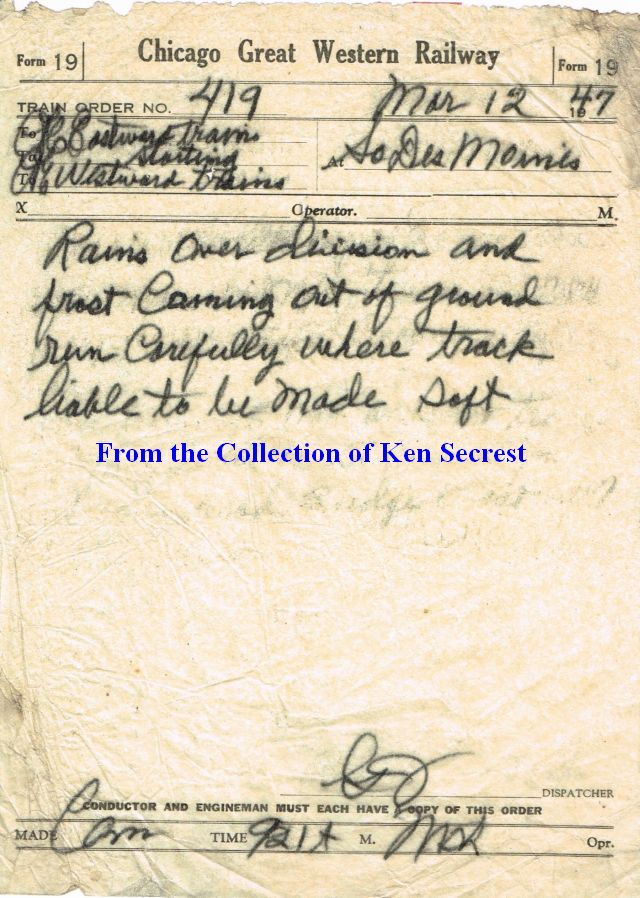 Form 19
Chicago Great Western Railway
Form 19
TRAIN ORDER NO. 419
Mar 12 1947
To C&E Eastward trains
To Starting
To C&E Westward trains
At So Des Moines
X Operator. M.
Rains over division and
frost Coming out of ground
run Carefully where track
liable to be made soft
From the Collection of Ken Secrest
DISPATCHER
CONDUCTOR AND ENGINEMAN MUST EACH HAVE A COPY OF THIS ORDER
MADE Com TIME 921 A M. Opr.